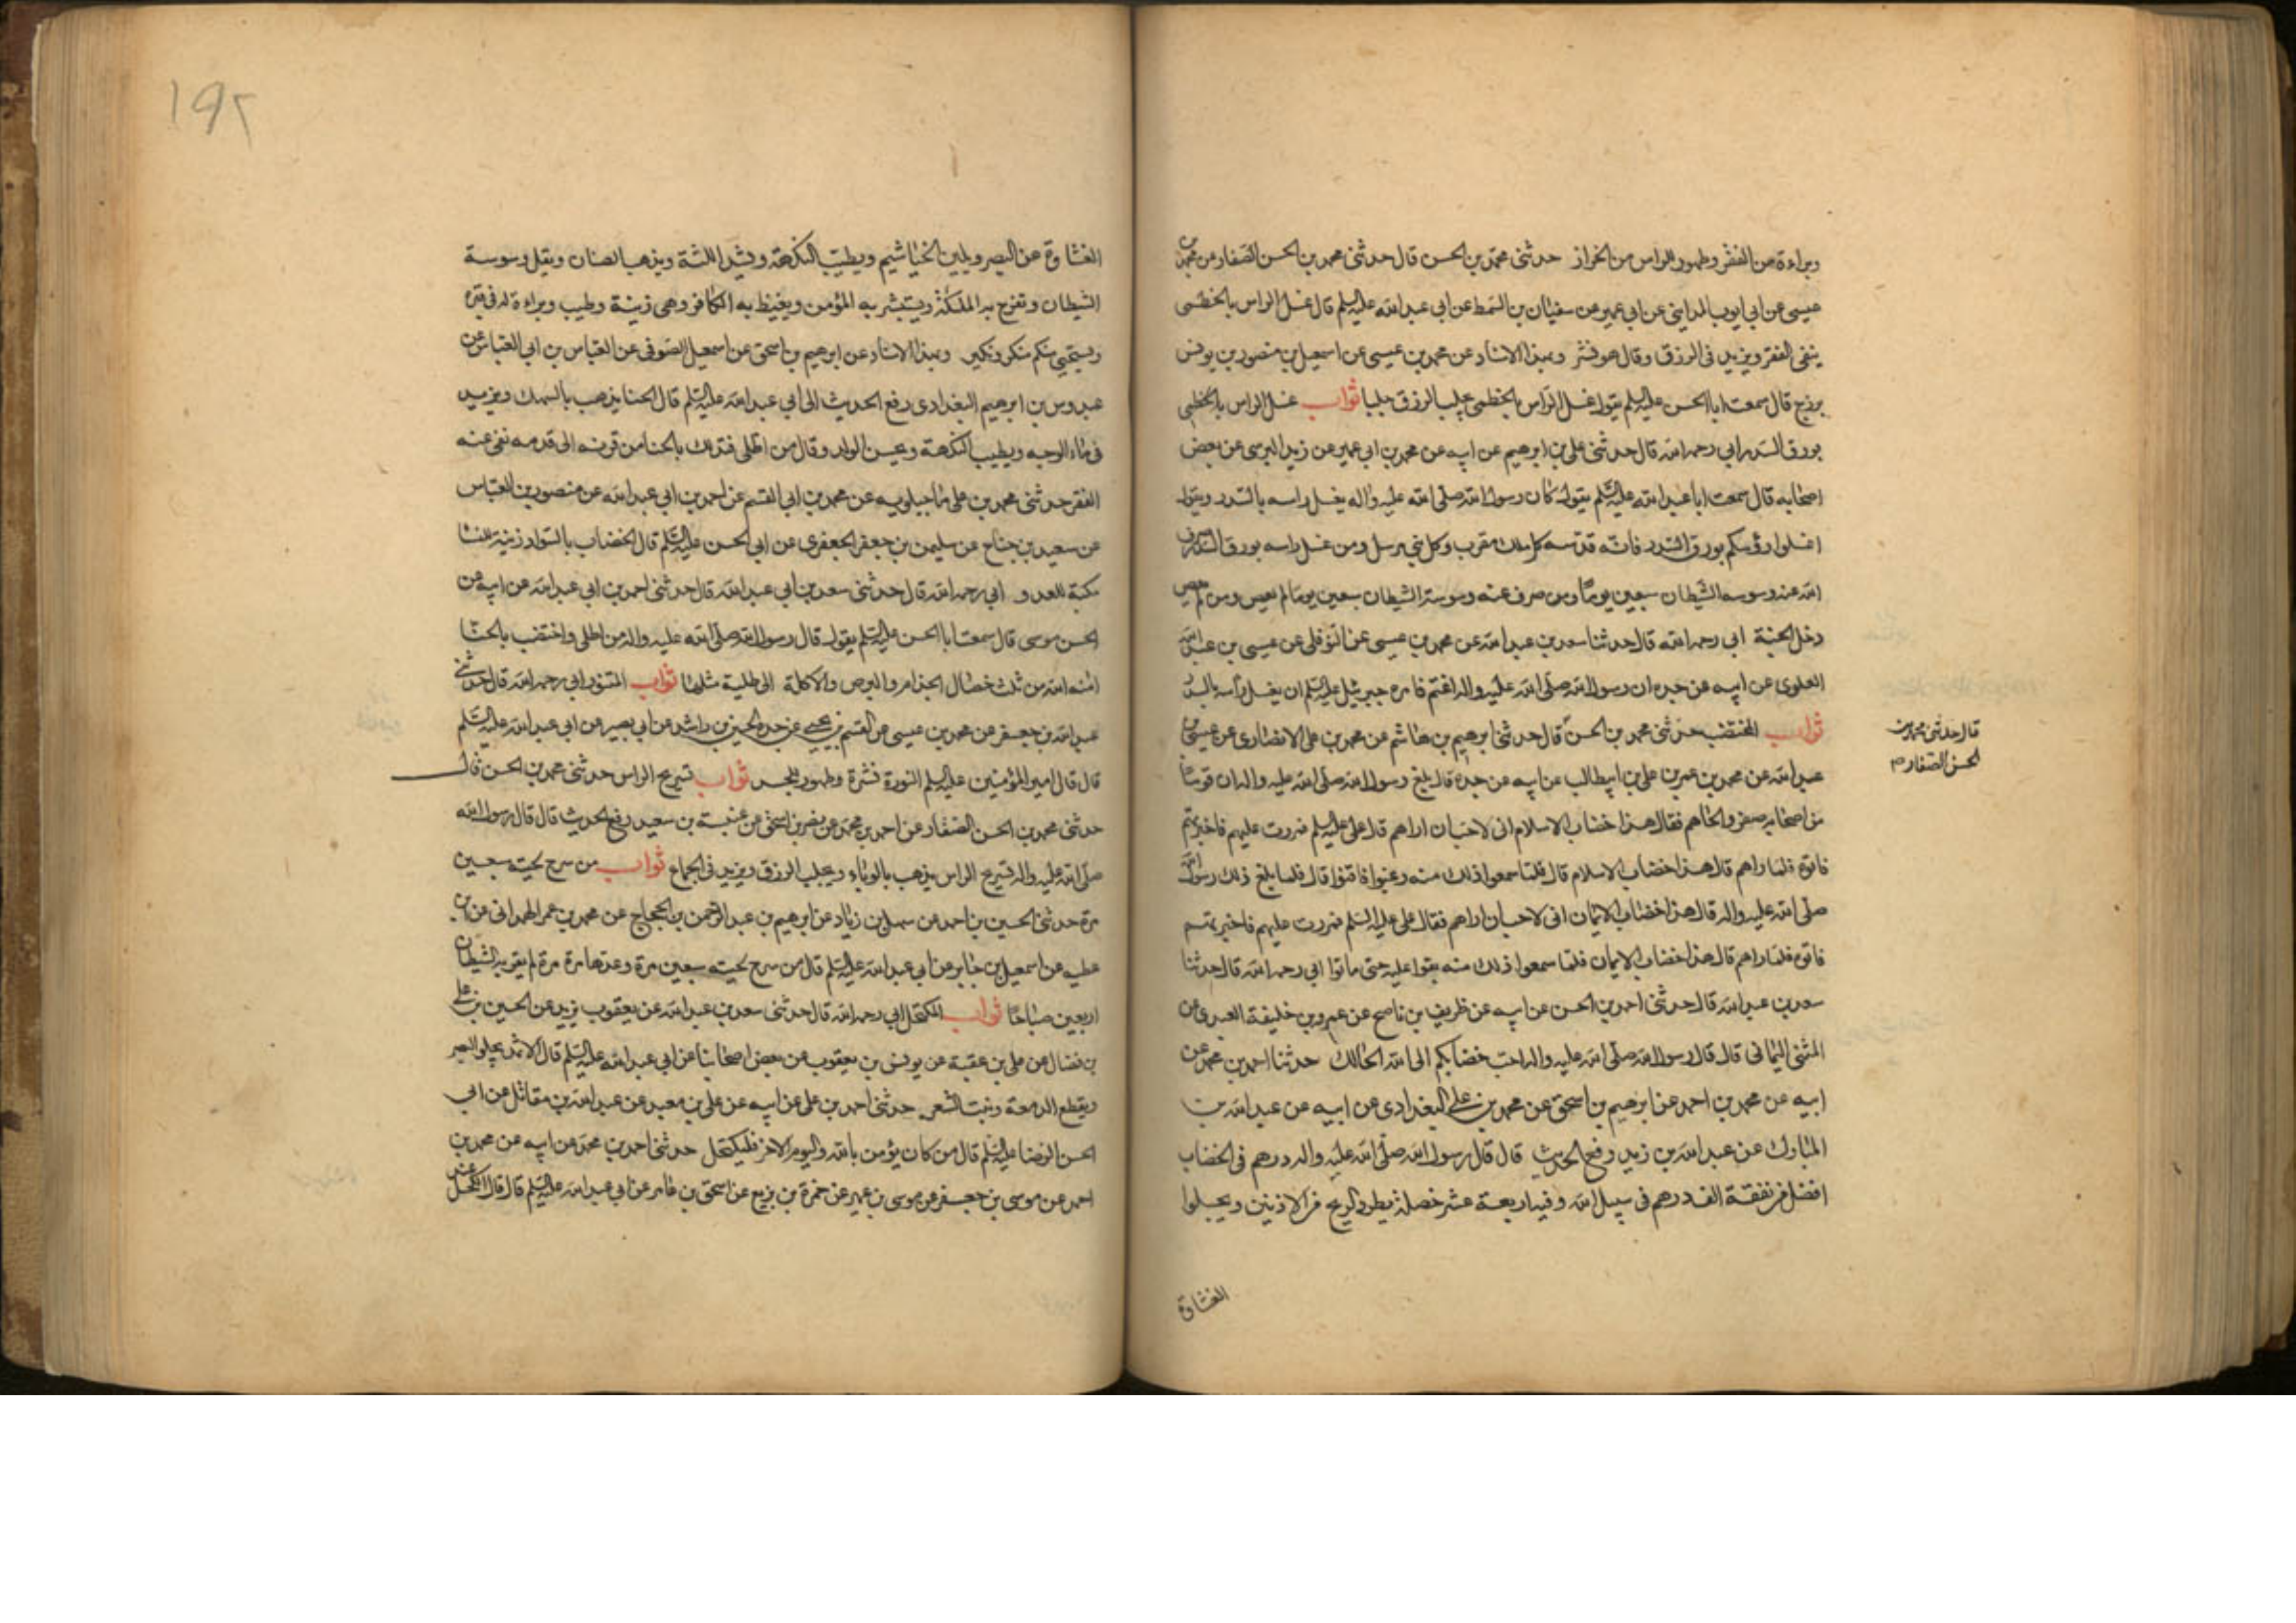 وبراءة من الفقر وطهور للراس من الخزاز حدثنى محمد بن الحسن قال حدثنى محمد بن الحسن الصفار عن محمد بن
عيسى عن ابى ايوب المداينى عن ابى عمير عن سفيان بن السمط عن ابى عبد الله عليه السلم قال غسل الراس بالخطمى
ينفى الفقر ويزيد فى الرزق وقال هو نشر وبهذا الاسناد عن محمد بن عيسى عن اسمعيل بن منصور بن يونس
بزرج قال سمعت ابا الحسن عليه السلم يقول غسل الراس بالخطمى يجلب الرزق جلبا ثواب غسل الراس بالخطمى
بورق السدر ابى رحمه الله قال حدثنى على بن ابرهيم عن ابيه عن محمد بن ابى عمير عن زيد النرسى عن بعض
اصحابه قال سمعت ابا عبد الله عليه السلم يقول كان رسول الله صلى الله عليه واله يغسل راسه بالسدر ويقول
اغسلوا رؤسكم بورق السدر فانه قدسه كل ملك مقرب وكل نبى مرسل ومن غسل راسه بورق السدر صرف
الله عنه وسوسه الشيطان سبعين يوما ومن صرف عنه وسوسة الشيطان سبعين يوما لم يعص ومن لم يعص
دخل الجنة ابى رحمه الله قال حدثنا سعد بن عبد الله عن محمد بن عيسى عن النوفلى عن عيسى بن عبد الله
العلوى عن ابيه عن جده ان رسول الله صلى الله عليه واله اغتم فامره جبرئيل عليه السلم ان يغسل راسه بالسدر
ثواب المختضب حدثنى محمد بن الحسن قال حدثنى ابرهيم بن هاشم عن محمد بن على الانصارى عن عيسى بن
قال حدثنى محمد بن
الحسن الصفار م
عبد الله عن محمد بن عمر بن على بن ابيطالب عن ابيه عن جده قال بلغ رسول الله صلى الله عليه واله ان قوما
من اصحابه صفروا لحاهم فقال هذا خضاب الاسلام انى لاحب ان اراهم قال على عليه السلم فمررت عليهم فاخبرتهم
فاتوه فلما راهم قال هذا خضاب الاسلام قال فلما سمعوا ذلك منه رغبوا فاقنوا قال فلما بلغ ذلك رسول الله
صلى الله عليه واله قال هذا خضاب الايمان انى لاحب ان اراهم فقال على عليه السلم فمررت عليهم فاخبرتهم
فاتوه فلما راهم قال هذا خضاب الايمان فلما سمعوا ذلك منه بقوا عليه حتى ماتوا ابى رحمه الله قال حدثنا
سعد بن عبد الله قال حدثنى احمد بن الحسن عن ابيه عن ظريف بن ناصح عن عمرو بن خليفة العبدى عن
المثنى اليمانى قال قال رسول الله صلى الله عليه واله احب خضابكم الى الله الحالك حدثنا احمد بن محمد عن
ابيه عن محمد بن احمد عن ابرهيم بن اسحق عن محمد بن على البغدادى عن ابيه عن عبد الله بن
المبارك عن عبد الله بن زيد رفع الحديث قال قال رسول الله صلى الله عليه واله درهم فى الخضاب
افضل من نفقة الف درهم فى سبيل الله وفيه اربعة عشر خصلة يطرد الريح من الاذنين ويجلوا
الغشاوة
١٩٢
الغشاوة عن البصر ويلين الخياشيم ويطيب النكهة ويشد اللثة ويذهب بالصنان ويقل وسوسة
الشيطان وتفرح به الملئكة ويستبشر به المؤمن ويغيظ به الكافر وهى زينة وطيب وبراءة له فى قبره
ويستحيى منكر ونكير وبهذا الاسناد عن ابرهيم بن اسحق عن اسمعيل الصوفى عن العباس بن ابى العباس عن
عبدوس بن ابرهيم البغدادى رفع الحديث الى ابى عبد الله عليه السلم قال الحنا يذهب بالسهك ويزيد
فى ماء الوجه ويطيب النكهة ويحسن الولد وقال من اطلى فتدلك بالحنا من قرنه الى قدمه نفى عنه
الفقر حدثنى محمد بن على ماجيلويه عن محمد بن ابى القسم عن احمد بن ابى عبد الله عن منصور بن العباس
عن سعيد بن جناح عن سليمن بن جعفر الجعفرى عن ابى الحسن عليه السلم قال الخضاب بالسواد زينة للنسا
مكبتة للعدو ابى رحمه الله قال حدثنى سعد بن ابى عبد الله قال حدثنى احمد بن ابى عبد الله عن ابيه عن
الحسن موسى قال سمعت ابا الحسن عليه السلم يقول قال رسول الله صلى الله عليه واله من اطلى واختضب بالحنا
امنه الله من ثلث خصال الجذام والبرص والاكلة الى طلية مثلها ثواب المتنور ابى رحمه الله قال حدثنى
عبد الله بن جعفر عن محمد بن عيسى عن القسم بن يحيى عن جده الحسين بن راشد عن ابى بصير عن ابى عبد الله عليه السلم
قال قال امير المؤمنين عليه السلم النورة نشرة وطهور للجسد ثواب تسريح الراس حدثنى محمد بن الحسن قال
حدثنى محمد بن الحسن الصفار عن احمد بن محمد عن نصر بن اسحق عن عنبسة بن سعيد رفع الحديث قال قال رسول الله
صلى الله عليه واله تسريح الراس يذهب بالوباء ويجلب الرزق ويزيد فى الجماع ثواب من سرح لحيته سبعين
مرة حدثنى الحسين بن احمد عن سهل بن زياد عن ابرهيم بن عبد الرحمن بن الحجاج عن محمد بن عمر الهمدانى عن ابن
عطيه عن اسمعيل بن جابر عن ابى عبد الله عليه السلم قال من سرح لحيته سبعين مرة وعدها مرة مرة لم يقربه الشيطان
اربعين صباحا ثواب المكتحل ابى رحمه الله قال حدثنى سعد بن عبد الله عن يعقوب يزيد عن الحسين بن على
بن فضال عن على بن عقبة عن يونس بن يعقوب عن بعض اصحابنا عن ابى عبد الله عليه السلم قال الاثمد يجلو البصر
ويقطع الدمعة وينبت الشعر حدثنى احمد بن على عن ابيه عن على بن معبد عن عبد الله بن مقاتل عن ابى
الحسن الرضا عليه السلم قال من كان يؤمن بالله واليوم الاخر فليكتحل حدثنى احمد بن محمد عن ابيه عن محمد بن
احمد عن موسى بن جعفر عن موسى بن عمير عن حمزة بن بزيع عن اسحق بن عمار عن ابى عبد الله عليه السلم قال قال الكحل عند